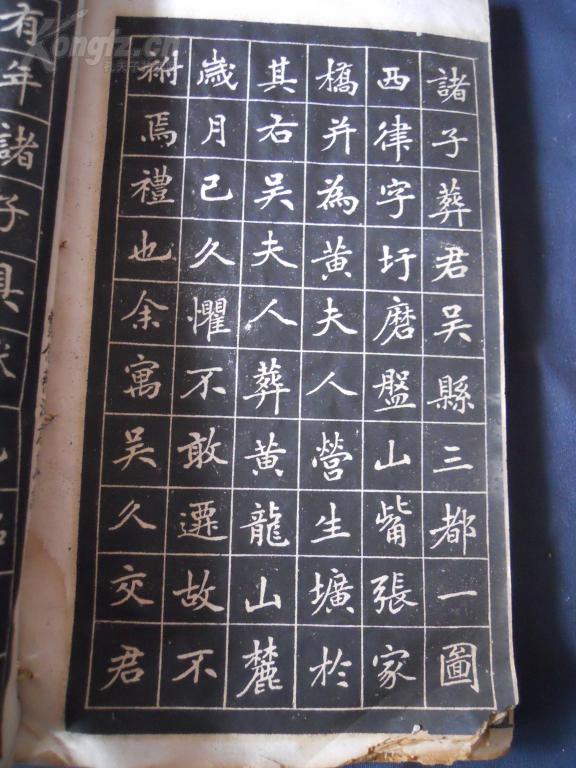 諸子葬君吳縣三都一圖
西律字圩磨盤山觜張家
橋并為黃夫人營生壙於
其右吳夫人葬黃龍山麓
歲月已久懼不敢遷故不
祔焉禮也余寓吳久交君
有年諸子具
Kongfz.cn